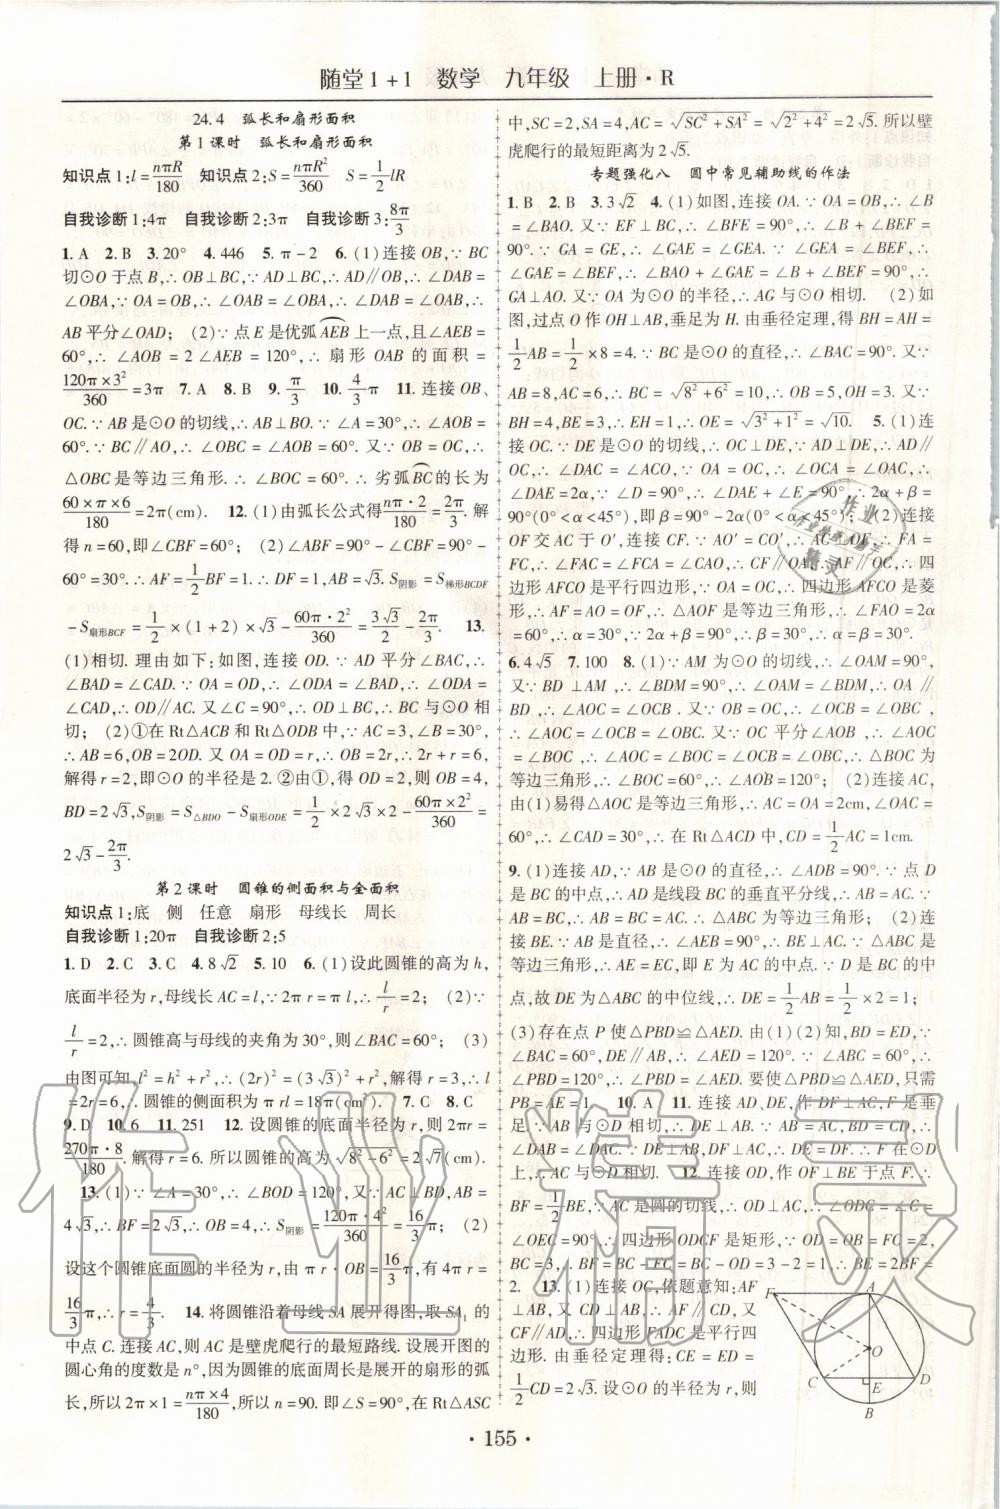 随堂1+1 数学 九年级 上册·R
24.4 弧长和扇形面积
第1课时 弧长和扇形面积
知识点1:l=nπR/180 知识点2:S=nπR²/360 S=1/2 lR
自我诊断1:4π 自我诊断2:3π 自我诊断3:8π/3
1.A 2.B 3.20° 4.446 5.π-2 6.(1)连接OB,∵BC
切⊙O于点B,∴OB⊥BC,∵AD⊥BC,∴AD∥OB,∴∠DAB=
∠OBA,∵OA=OB,∴∠OAB=∠OBA,∴∠DAB=∠OAB,∴
AB平分∠OAD; (2)∵点E是优弧AEB上一点,且∠AEB=
60°,∴∠AOB=2∠AEB=120°,∴扇形OAB的面积=
120π×3²/360=3π 7.A 8.B 9.π/3 10.4/3π 11.连接OB、
OC.∵AB是⊙O的切线,∴AB⊥BO.∵∠A=30°,∴∠AOB=
60°.∵BC∥AO,∴∠OBC=∠AOB=60°.又∵OB=OC,∴
△OBC是等边三角形.∴∠BOC=60°.∴劣弧BC的长为
60×π×6/180=2π(cm). 12.(1)由弧长公式得nπ·2/180=2π/3.解
得n=60,即∠CBF=60°; (2)∠ABF=90°-∠CBF=90°-
60°=30°.∴AF=1/2BF=1.∴DF=1,AB=√3.S阴影=S梯形BCDF
-S扇形BCF=1/2×(1+2)×√3-60π·2²/360=3√3/2-2π/3. 13.
(1)相切.理由如下:如图,连接OD.∵AD平分∠BAC,∴
∠BAD=∠CAD.∵OA=OD,∴∠ODA=∠BAD,∴∠ODA=
∠CAD,∴OD∥AC.又∠C=90°,∴OD⊥BC,∴BC与⊙O相
切; (2)①在Rt△ACB和Rt△ODB中,∵AC=3,∠B=30°,
∴AB=6,OB=2OD.又OA=OD=r,∴OB=2r,∴2r+r=6,
解得r=2,即⊙O的半径是2.②由①,得OD=2,则OB=4,
BD=2√3,S阴影=S△BDO-S扇形ODE=1/2×2√3×2-60π×2²/360=
2√3-2π/3.
第2课时 圆锥的侧面积与全面积
知识点1:底 侧 任意 扇形 母线长 周长
自我诊断1:20π 自我诊断2:5
1.D 2.C 3.C 4.8√2 5.10 6.(1)设此圆锥的高为h,
底面半径为r,母线长AC=l,∵2πr=πl,∴l/r=2; (2)∵
l/r=2,∴圆锥高与母线的夹角为30°,则∠BAC=60°; (3)
由图可知l²=h²+r²,∴(2r)²=(3√3)²+r²,解得r=3,∴l
=2r=6,∴圆锥的侧面积为πrl=18π(cm²). 7.C 8.C
9.D 10.6 11.251 12.设圆锥的底面半径为r,得2πr=
270π·8/180.解得r=6.所以圆锥的高为√8²-6²=2√7(cm).
13.(1)∵∠A=30°,∴∠BOD=120°,又∵AC⊥BD,AB=
4√3,∴BF=2√3,∴OB=4,∴S阴影=120π·4²/360=16/3π; (2)
设这个圆锥底面圆的半径为r,由πr·OB=16/3π,有4πr=
16/3π,∴r=4/3. 14.将圆锥沿着母线SA展开得图,取SA₁的
中点C.连接AC,AC是壁虎爬行的最短路线.设展开图的
圆心角的度数是n°,因为圆锥的底面周长是展开的扇形的弧
长,所以2π×1=nπ×4/180,所以n=90.即∠S=90°,在Rt△ASC
中,SC=2,SA=4,AC=√SC²+SA²=√2²+4²=2√5.所以壁
虎爬行的最短距离为2√5.
专题强化八 圆中常见辅助线的作法
1.B 2.B 3.3√2 4.(1)如图,连接OA.∵OA=OB,∴∠B
=∠BAO.又∵EF⊥BC,∴∠BFE=90°,∴∠B+∠BEF=
90°.∵GA=GE,∴∠GAE=∠GEA.∵∠GEA=∠BEF,∴
∠GAE=∠BEF,∴∠BAO+∠GAE=∠B+∠BEF=90°,∴
GA⊥AO.又∵OA为⊙O的半径,∴AG与⊙O相切. (2)如
图,过点O作OH⊥AB,垂足为H.由垂径定理,得BH=AH=
1/2AB=1/2×8=4.∵BC是⊙O的直径,∴∠BAC=90°.又∵
AB=8,AC=6,∴BC=√8²+6²=10,∴OB=5,OH=3.又∵
BH=4,BE=3,∴EH=1,∴OE=√3²+1²=√10. 5.(1)连
接OC.∵DE是⊙O的切线,∴OC⊥DE,∵AD⊥DE,∴AD∥
OC,∴∠DAC=∠ACO,∵OA=OC,∴∠OCA=∠OAC,∴
∠DAE=2α,∵∠D=90°,∴∠DAE+∠E=90°,∴2α+β=
90°(0°<α<45°),即β=90°-2α(0°<α<45°). (2)连接
OF交AC于O′,连接CF.∵AO′=CO′,∴AC⊥OF,∴FA=
FC,∴∠FAC=∠FCA=∠CAO,∴CF∥OA,∵AF∥OC,∴四
边形AFCO是平行四边形,∵OA=OC,∴四边形AFCO是菱
形,∴AF=AO=OF,∴△AOF是等边三角形,∴∠FAO=2α
=60°,∴α=30°,∵2α+β=90°,∴β=30°,∴α=β=30°.
6.4√5 7.100 8.(1)∵AM为⊙O的切线,∴∠OAM=90°,
又∵BD⊥AM,∴∠BDM=90°,∴∠OAM=∠BDM,∴OA∥
BD,∴∠AOC=∠OCB.又∵OB=OC,∴∠OCB=∠OBC,
∴∠AOC=∠OCB=∠OBC.又∵OC平分∠AOB,∴∠AOC
=∠BOC,∴∠AOC=∠BOC=∠OCB=∠OBC,∴△BOC为
等边三角形,∴∠BOC=60°,∴∠AOB=120°; (2)连接AC,
由(1)易得△AOC是等边三角形,∴AC=OA=2cm,∠OAC=
60°,∴∠CAD=30°,∴在Rt△ACD中,CD=1/2AC=1cm.
9.(1)连接AD,∵AB是⊙O的直径,∴∠ADB=90°.∵点D
是BC的中点,∴AD是线段BC的垂直平分线,∴AB=AC.∵
AB=BC,∴AB=BC=AC,∴△ABC为等边三角形; (2)连
接BE.∵AB是直径,∴∠AEB=90°,∴BE⊥AC.∵△ABC是
等边三角形,∴AE=EC,即E为AC的中点.∵D是BC的中
点,故DE为△ABC的中位线,∴DE=1/2AB=1/2×2=1;
(3)存在点P使△PBD≌△AED.由(1)(2)知,BD=ED,∵
∠BAC=60°,DE∥AB,∴∠AED=120°.∵∠ABC=60°,∴
∠PBD=120°,∴∠PBD=∠AED.要使△PBD≌△AED,只需
PB=AE=1. 10.A 11.连接AD、DE,作DF⊥AC,F是垂
足.∵AB与⊙D相切,∴BD⊥AB.又∵AC=AC,BD=CD,∴
∠DAB=∠DAC.∵DE⊥AB,DF⊥AC,∴DE=DF.∴F在⊙D
上,∴AC与⊙D相切. 12.连接OD,作OF⊥BE于点F.∴
BF=1/2BE,∵AC是圆的切线,∴OD⊥AC,∴∠ODC=∠C=
∠OEC=90°,∴四边形ODCF是矩形,∵OD=OB=FC=2,
BC=3,∴BF=BC-FC=BC-OD=3-2=1.∴BE=2BF=
2. 13.(1)连接OC,依题意知:AF
⊥AB,又CD⊥AB,∴AF∥CD,又
CF∥AD,∴四边形FADC是平行四
边形.由垂径定理得:CE=ED=
1/2CD=2√3.设⊙O的半径为r,则
F A O C E D B
·155·